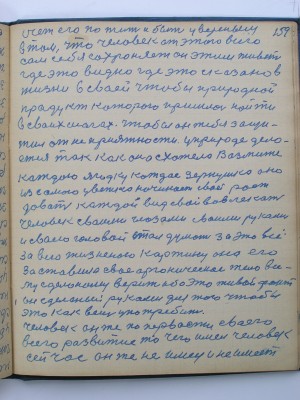 159
счет его пожит и быть уверенным
в том, что человек от этого всего
сам себя сохраняет он этим живет
где это видно где это сказано в
жизни в своей чтобы природной
продукт которого пришлось найти
в своих шагах. чтобы он тебя защи-
тил от неприятности. у природе дела-
ется так как она схотела Возмите
каждою ягодку каждое зернушко оно
из самого цветка начинает свой рост
давать каждой вид свой вовлекать
человек своими глазами своими руками
и своею головой стал думать за это всё
за всю жизненою картину она его
заставила свое органическое тело Ви-
ду сделаному верить абоэто живой факт
он сделаний руками для того чтобы
это как вещ употребить.
Человек он же по первости своего
всего развитие то чего имел человек
сей час он же не имел и не имеет